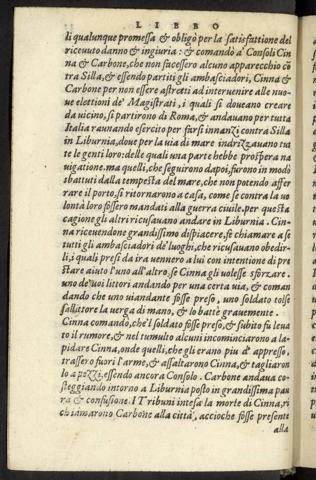 LIBRO
li qualunque promessa & obligò per la satisfattione del
ricevuto danno & ingiuria: & comandò a' Consoli Cin
na & Carbone, che non facessero alcuno apparecchio cō
tra Silla, & essendo partiti gli ambasciadori, Cinna &
Carbone per non essere astretti ad intervenire alle nuo-
ve elettioni de' Magistrati, i quali si doveano creare
da vicino, si partirono di Roma, & andauano per tutta
Italia raunando esercito per farsi innanzi contra Silla
in Liburnia, doue per la uia di mare indrizzauano tut
te le genti loro: delle quali una parte hebbe prospera na
uigatione. ma quelli, che seguirono dapoi, furono in modo
sbattuti dalla tempesta del mare, che non potendo affer
rare il porto, si ritornarono a casa, come se contra la uo
lontà loro fossero mandati alla guerra ciuile. per questa
cagione gli altri ricusauano andare in Liburnia. Cin-
na riceuendone grandissimo dispiacere, fe chiamare a se
tutti gli ambasciadori de' luoghi, che ricusauano obedir-
li, i quali presi da ira uennero a lui con intentione di pre
stare aiuto l'uno all'altro, se Cinna gli uolesse sforzare.
uno de' suoi littori andando per una certa uia, & coman
dando che uno uiandante fosse preso, uno soldato tolse
sallittore la uerga di mano, & lo battè grauemente.
Cinna comandò, che'l soldato fosse preso, & subito fu leua
to il rumore, & nel tumulto alcuni incominciarono a la-
pidare Cinna, onde quelli, che gli erano piu d'appresso,
trassero fuori l'arme, & assaltarono Cinna, & tagliaron
lo a pezzi, essendo ancora Consolo. Carbone andaua co-
steggiando intorno a Liburnia posto in grandissima pau
ra & confusione. I Tribuni intesa la morte di Cinna, ri
chiamarono Carbone alla città, accioche fosse presente
alla